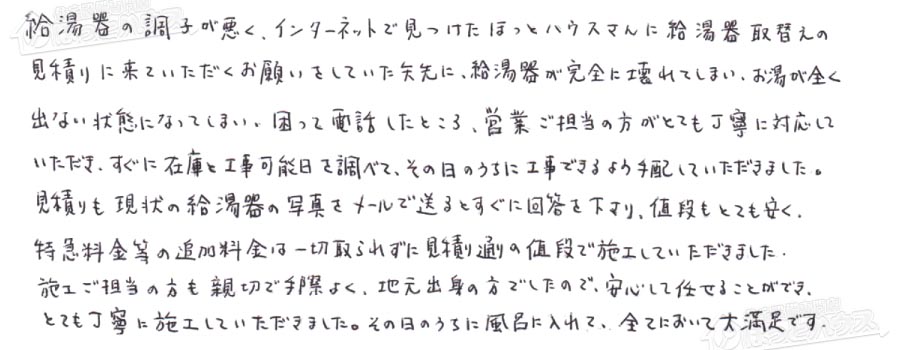 給湯器の調子が悪く、インターネットで見つけたほっとハウスさんに給湯器取替えの
見積りに来ていただくお願いをしていた矢先に、給湯器が完全に壊れてしまい、お湯が全く
出ない状態になってしまい、困って電話したところ、営業ご担当の方がとても丁寧に対応して
いただき、すぐに在庫と工事可能日を調べて、その日のうちに工事できるよう手配していただきました。
見積りも現状の給湯器の写真をメールで送るとすぐに回答を下さり、値段もとても安く、
特急料金等の追加料金は一切取られずに見積り通りの値段で施工していただきました。
施工ご担当の方も親切で手際よく、地元出身の方でしたので、安心して任せることができ、
とても丁寧に施工していただきました。その日のうちに風呂に入れて、全てにおいて大満足です。